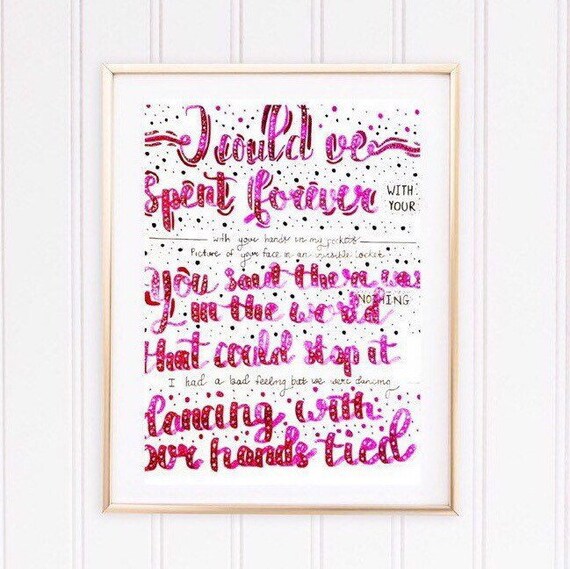 I could've
spent forever WITH
YOUR
with your hands in my pockets
Picture of your face in an invisible locket
You said there was
NOTHING
in the world
that could stop it
I had a bad feeling but we were dancing
dancing with
our hands tied